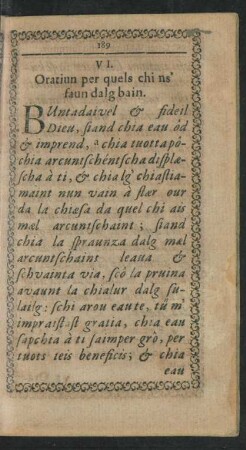 189
VI.
Oratiun per quels chi ns'
faun dalg bain.
BUntadaivel & fideil
Dieu, siand chia eau ôd
& imprend, chia tuotta pô-
chia arcuntschéntscha displæ-
scha à ti, & chia lg' chiastia-
maint nun vain à stær our
da la chiæsa da quel chi ais
mæl arcuntschaint; siand
chia la spraunza dalg mæl
arcuntschaint leaua &
schvainta via, scò la pruina
avaunt la chialur dalg su-
lailg: schi arou eau te, tü m'
impraist st gratia, chia eau
sapchia à ti saimper grò, per
tuots teis beneficis; & chia
eau